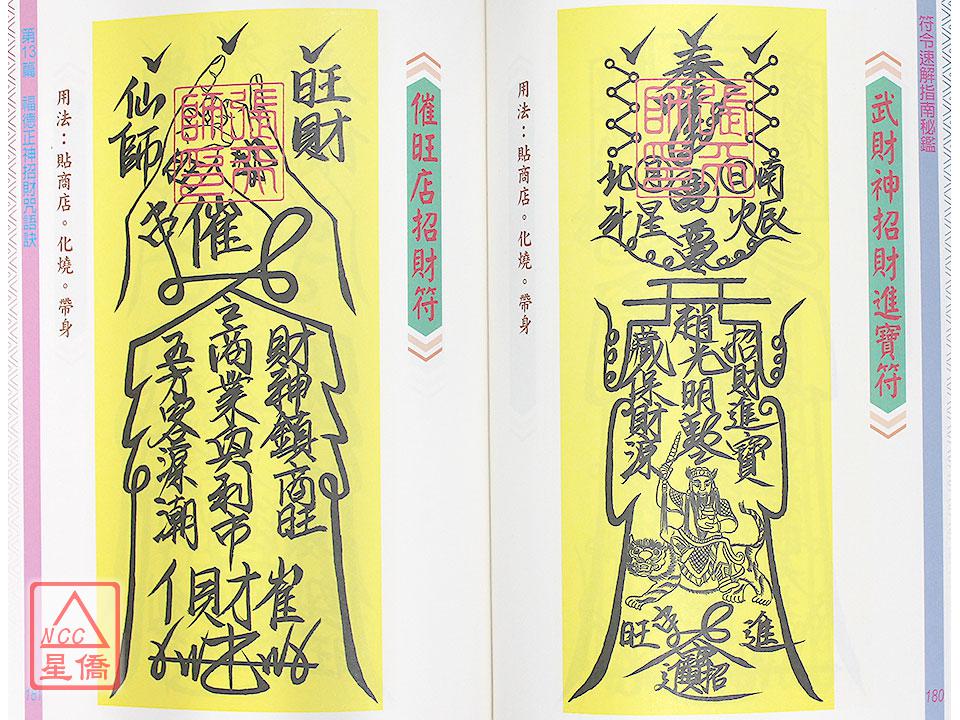 符令速解指南秘鑑
武財神招財進寶符
奉
南辰
日火
月星
北斗
趙光明
招財進寶
藏保財源
進
旺
招
用法：貼商店。化燒。帶身
180
催旺店招財符
旺財
仙師
催
財神鎮商旺
商業內利市
五方客源潮
財
用法：貼商店。化燒。帶身
第13篇 福德正神招財咒語訣
181
NCC
星僑